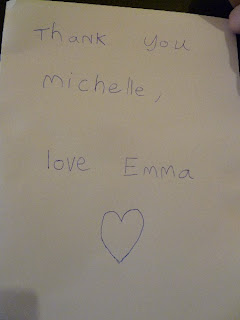 Thank you
michelle,
love Emma